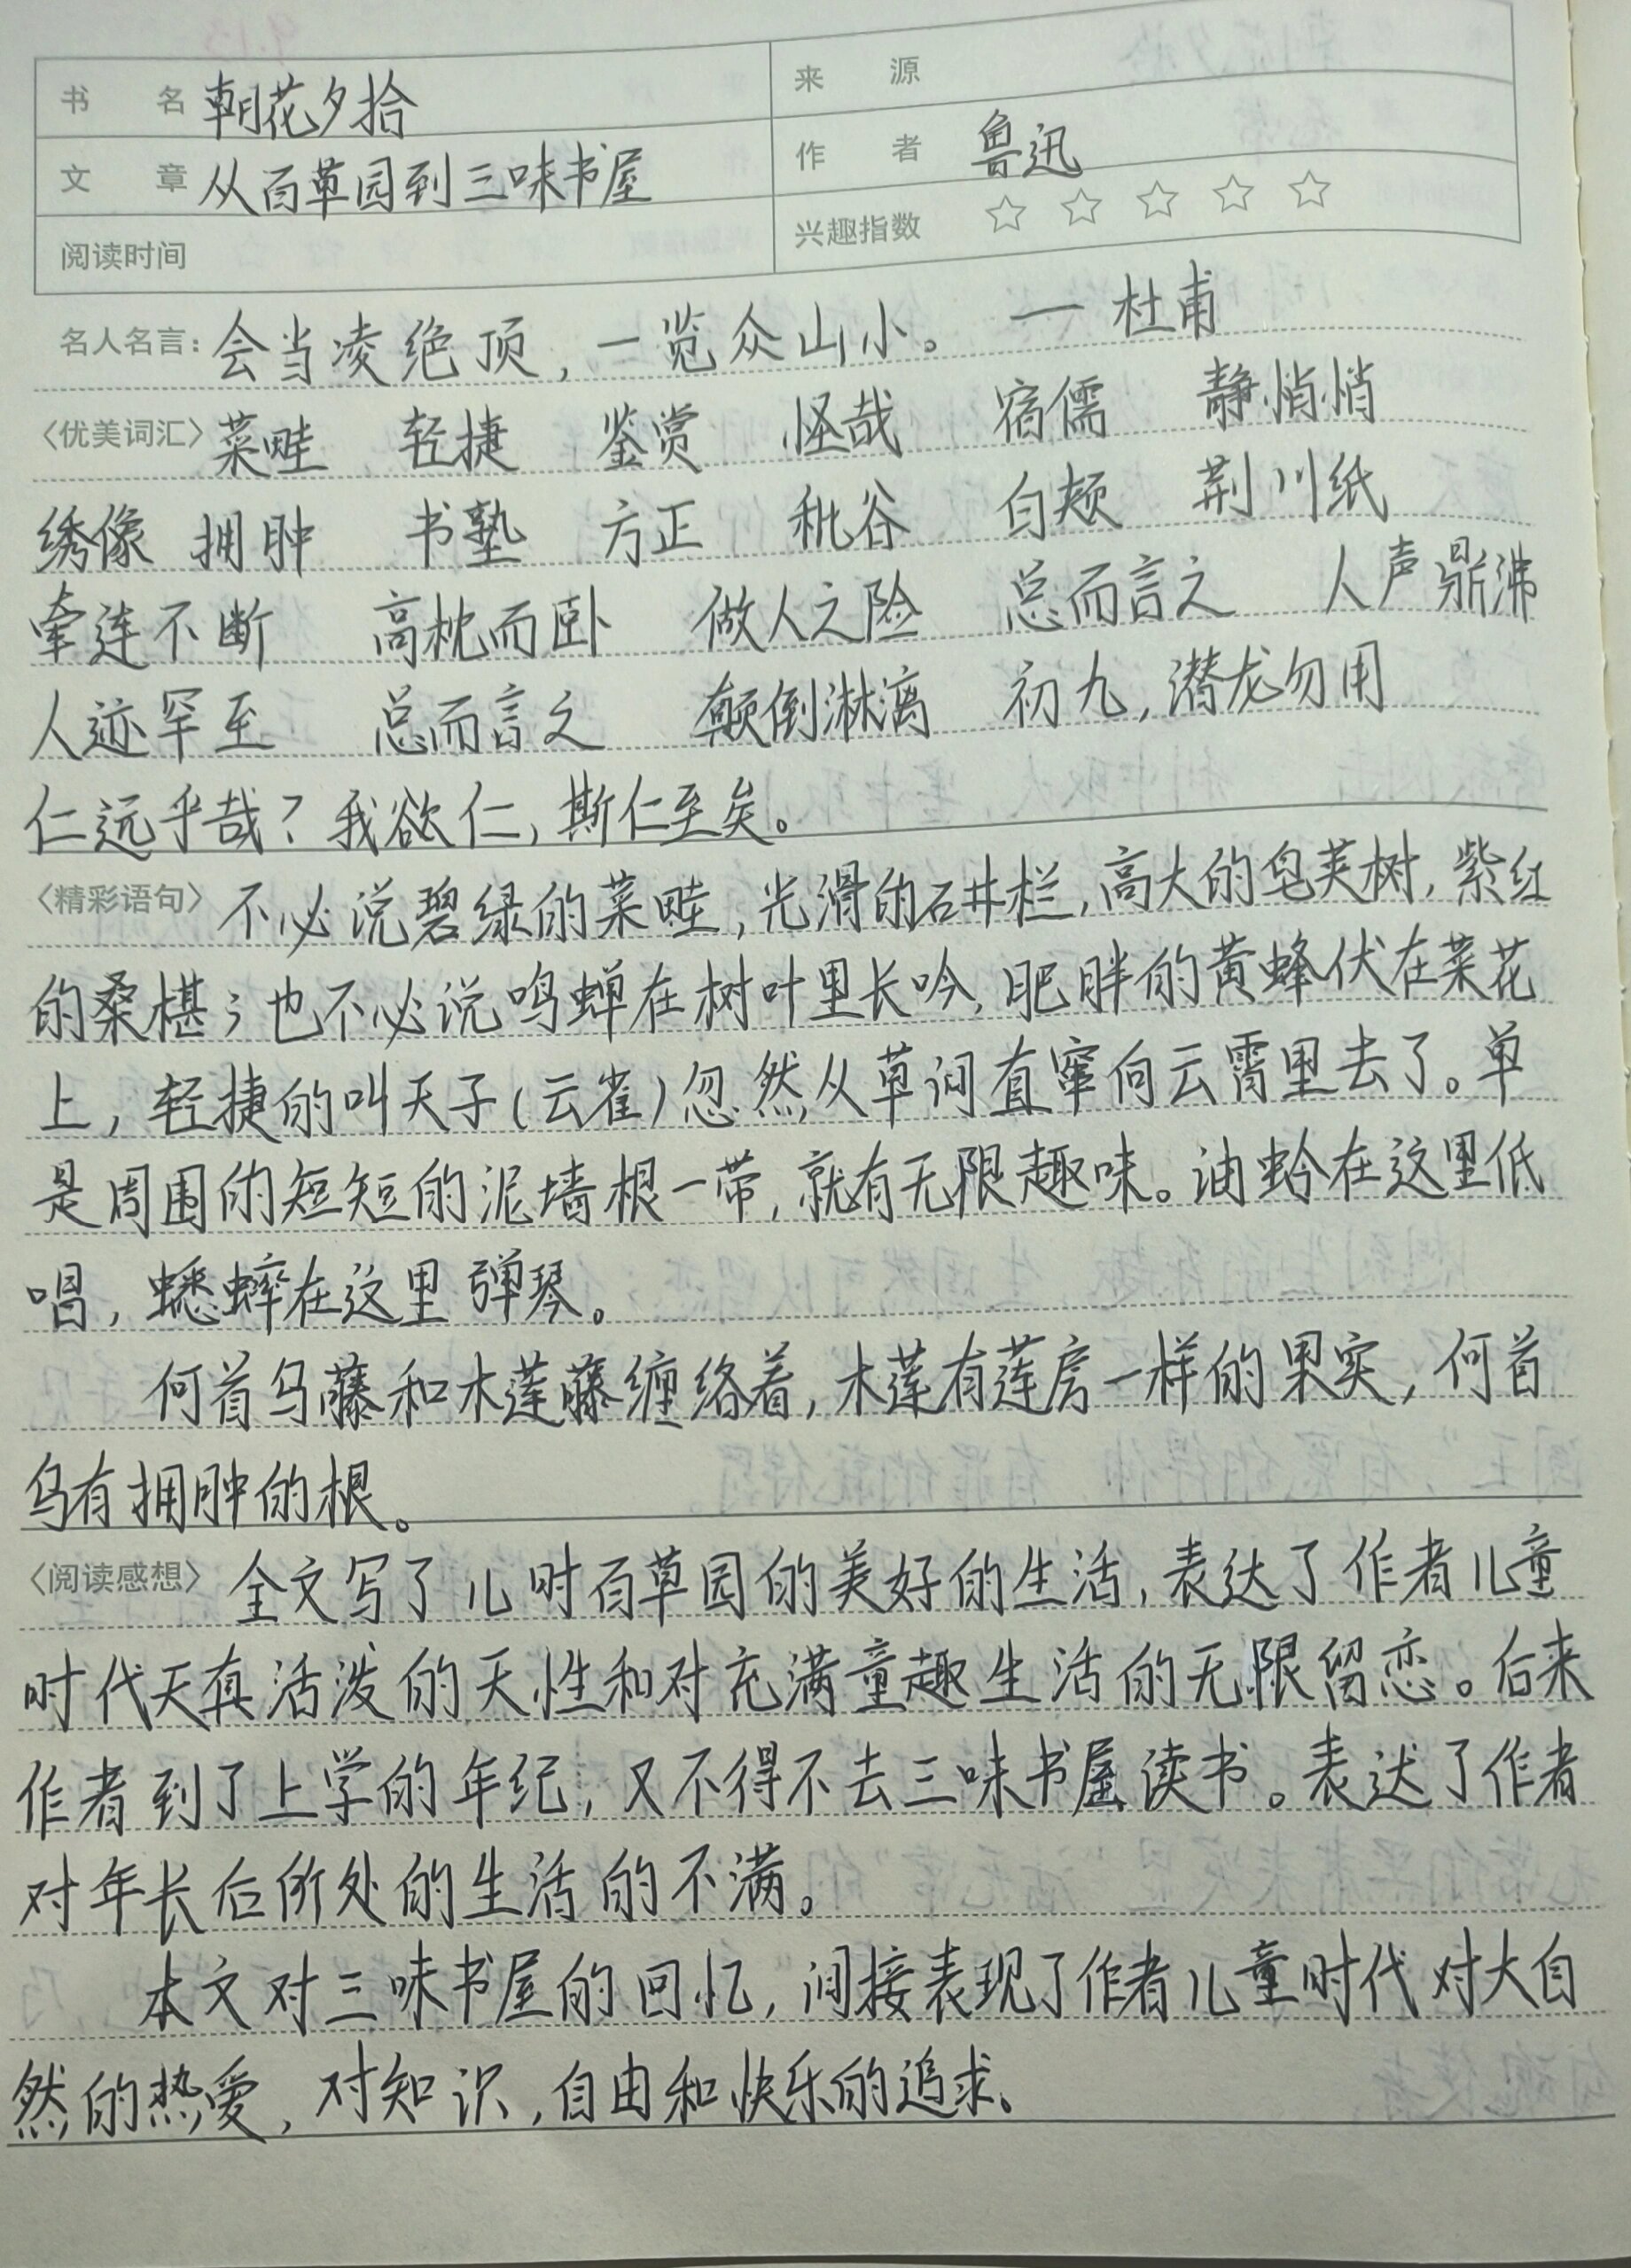 书名 朝花夕拾 来源
文章 从百草园到三味书屋 作者 鲁迅
阅读时间 兴趣指数 ☆☆☆☆☆
名人名言：会当凌绝顶，一览众山小。 — 杜甫
〈优美词汇〉菜畦 轻捷 鉴赏 怪哉 宿儒 静悄悄
绣像 拥肿 书塾 方正 秕谷 白颊 荆川纸
牵连不断 高枕而卧 做人之险 总而言之 人声鼎沸
人迹罕至 总而言之 颠倒淋漓 初九，潜龙勿用
仁远乎哉？我欲仁，斯仁至矣。
〈精彩语句〉不必说碧绿的菜畦，光滑的石井栏，高大的皂荚树，紫红
的桑椹；也不必说鸣蝉在树叶里长吟，肥胖的黄蜂伏在菜花
上，轻捷的叫天子（云雀）忽然从草间直窜向云霄里去了。单
是周围的短短的泥墙根一带，就有无限趣味。油蛉在这里低
唱，蟋蟀在这里弹琴。
何首乌藤和木莲藤缠络着，木莲有莲房一样的果实，何首
乌有拥肿的根。
〈阅读感想〉全文写了儿时百草园的美好的生活，表达了作者儿童
时代天真活泼的天性和对充满童趣生活的无限留恋。后来
作者到了上学的年纪，又不得不去三味书屋读书。表达了作者
对年长后所处的生活的不满。
本文对三味书屋的回忆，间接表现了作者儿童时代对大自
然的热爱，对知识，自由和快乐的追求。